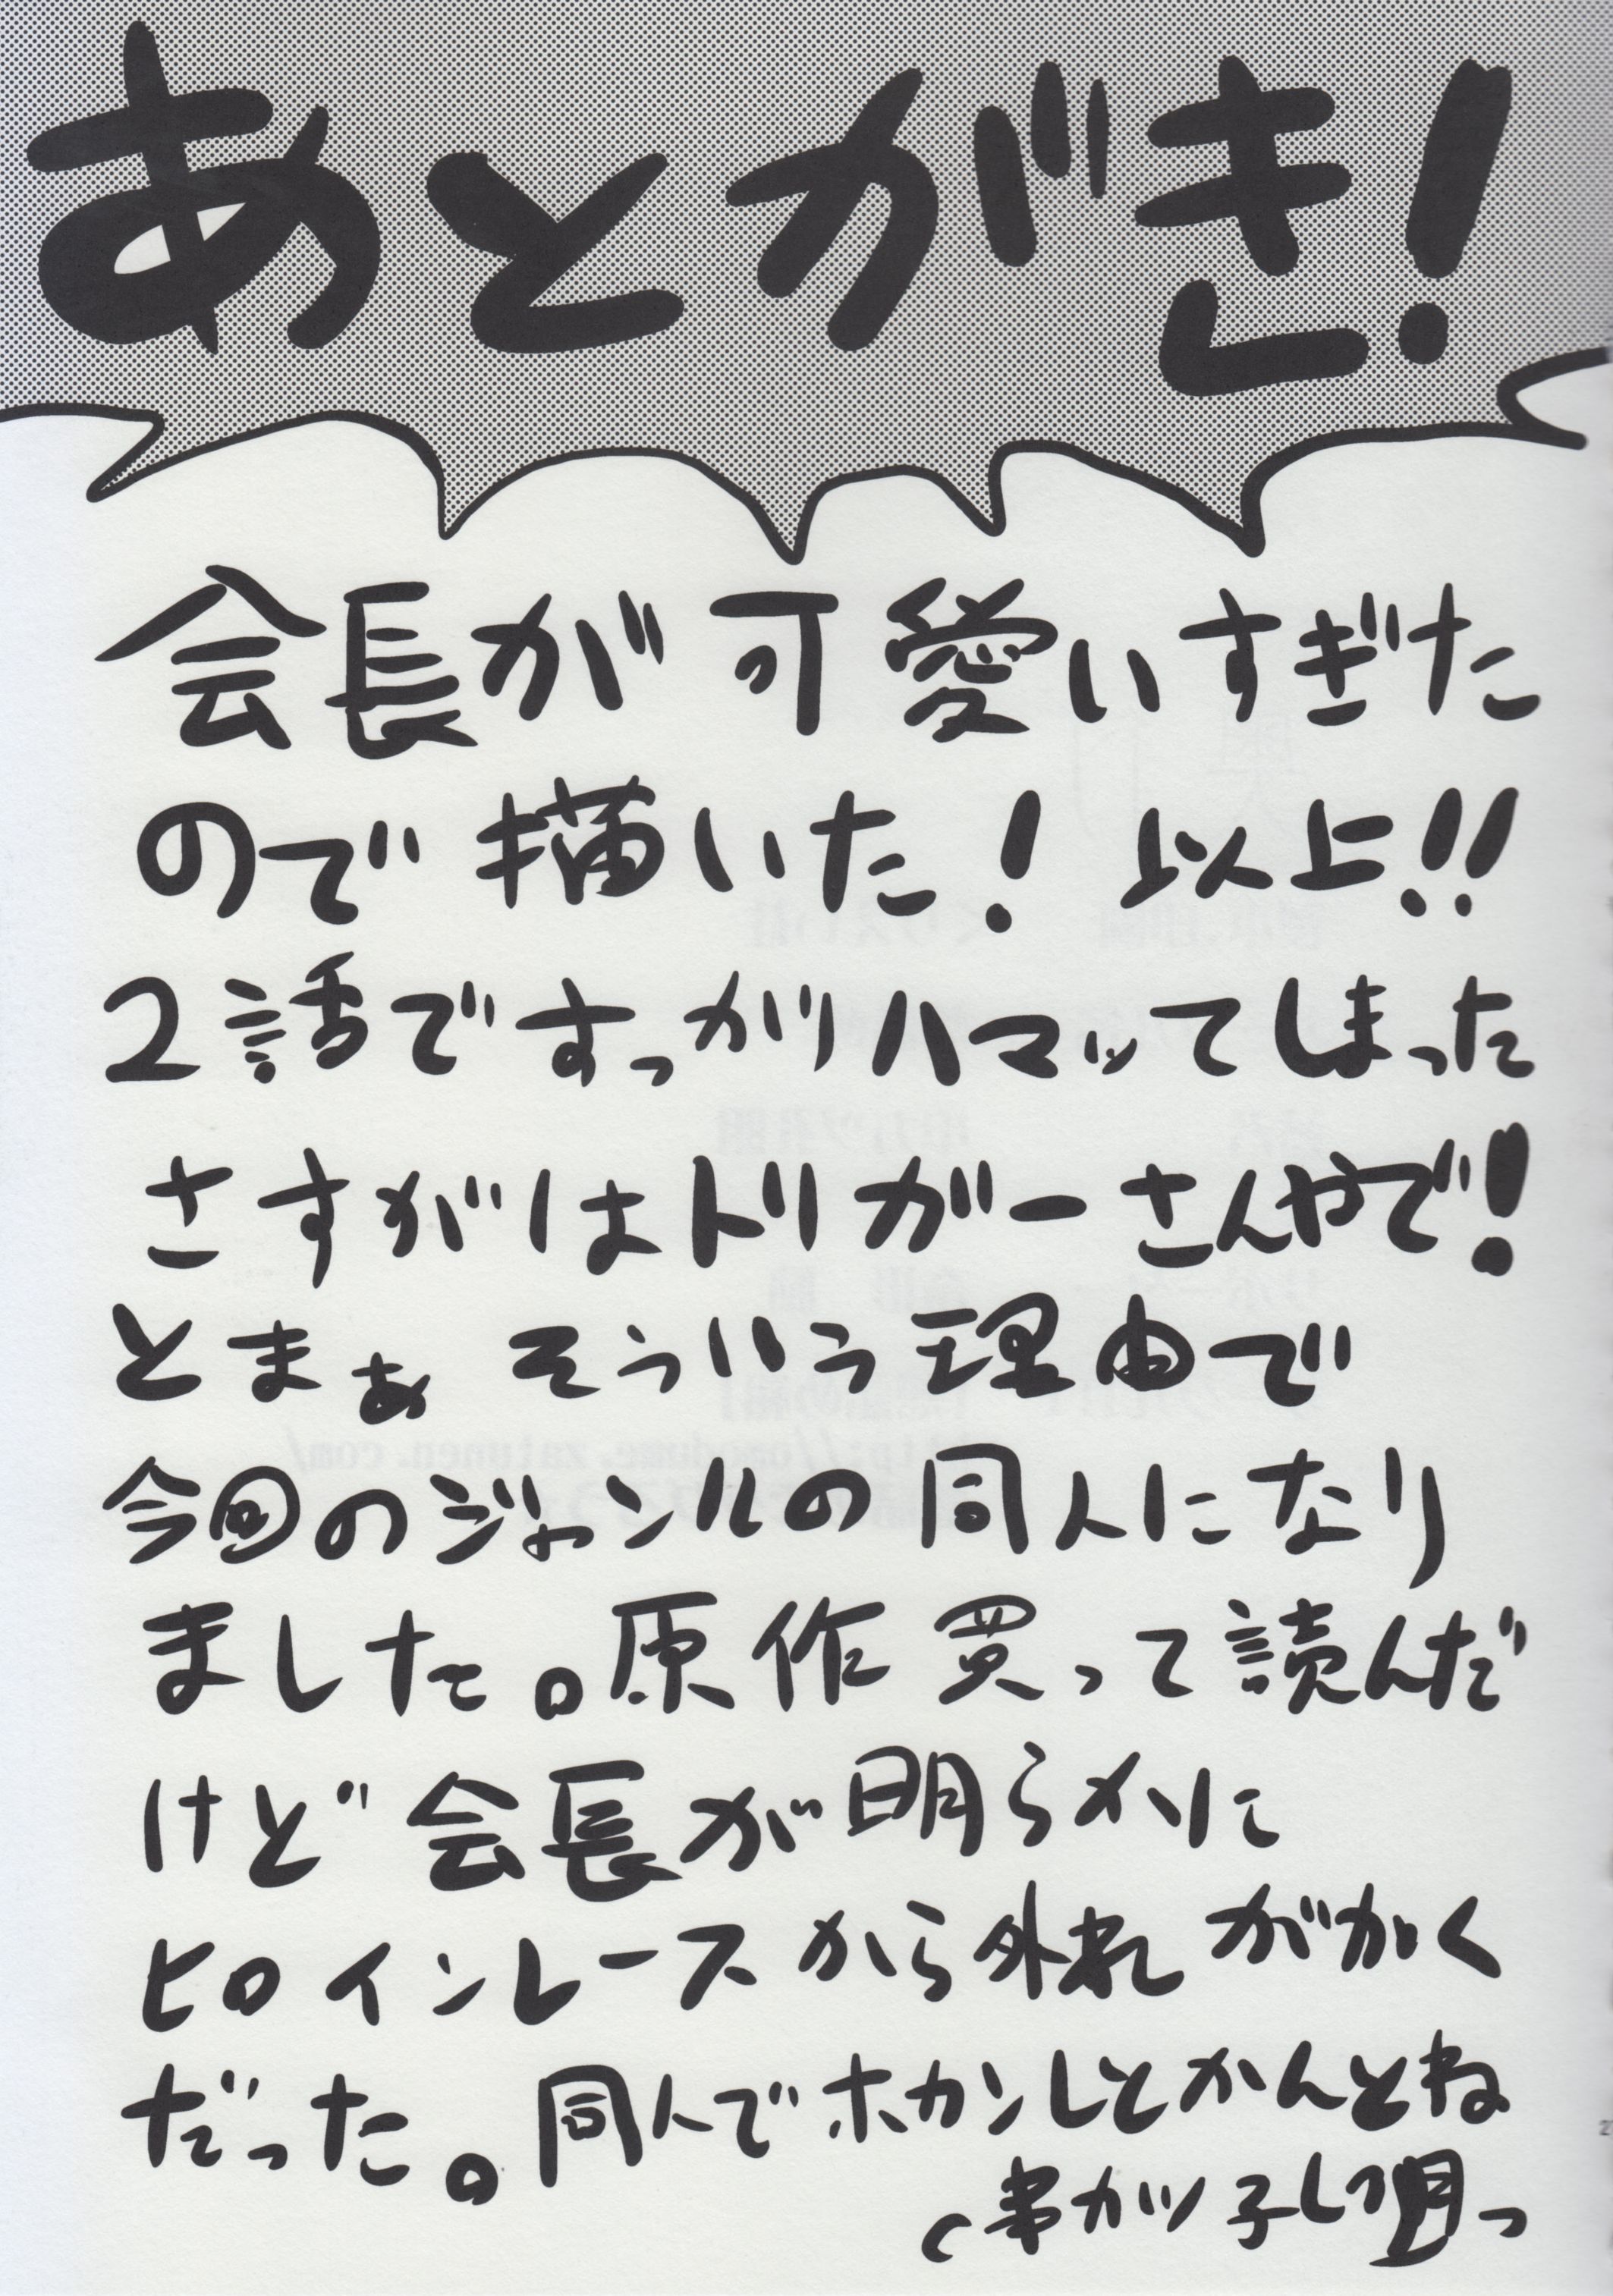 あとがき!
会長が可愛いすぎた
ので描いた! 以上!!
2話ですっかりハマッてしまった
さすがはトリガーさんやで!
とまぁ そういう理由で
今回のジャンルの同人になり
ました。原作買って読んだ
けど会長が明らかに
ヒロインレースから外れ がかく
だった。同人でホカンしとかんとね
串カツ